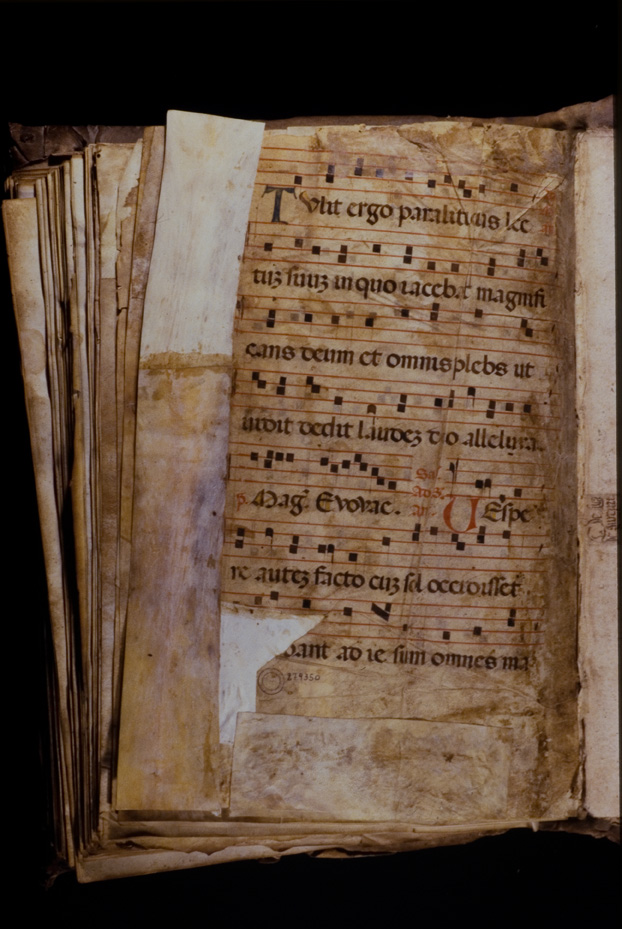 Tvlit ergo paraliticus lec
tuz suuz in quo iacebat magnifi
cans deum et omnis plebs ut
uidit dedit laudez dõ alleluya.
p. Mag. Evovae. Ses Espe
re autez facto cuz sol occidisset
bant ad ie. sum omnes ma
274350